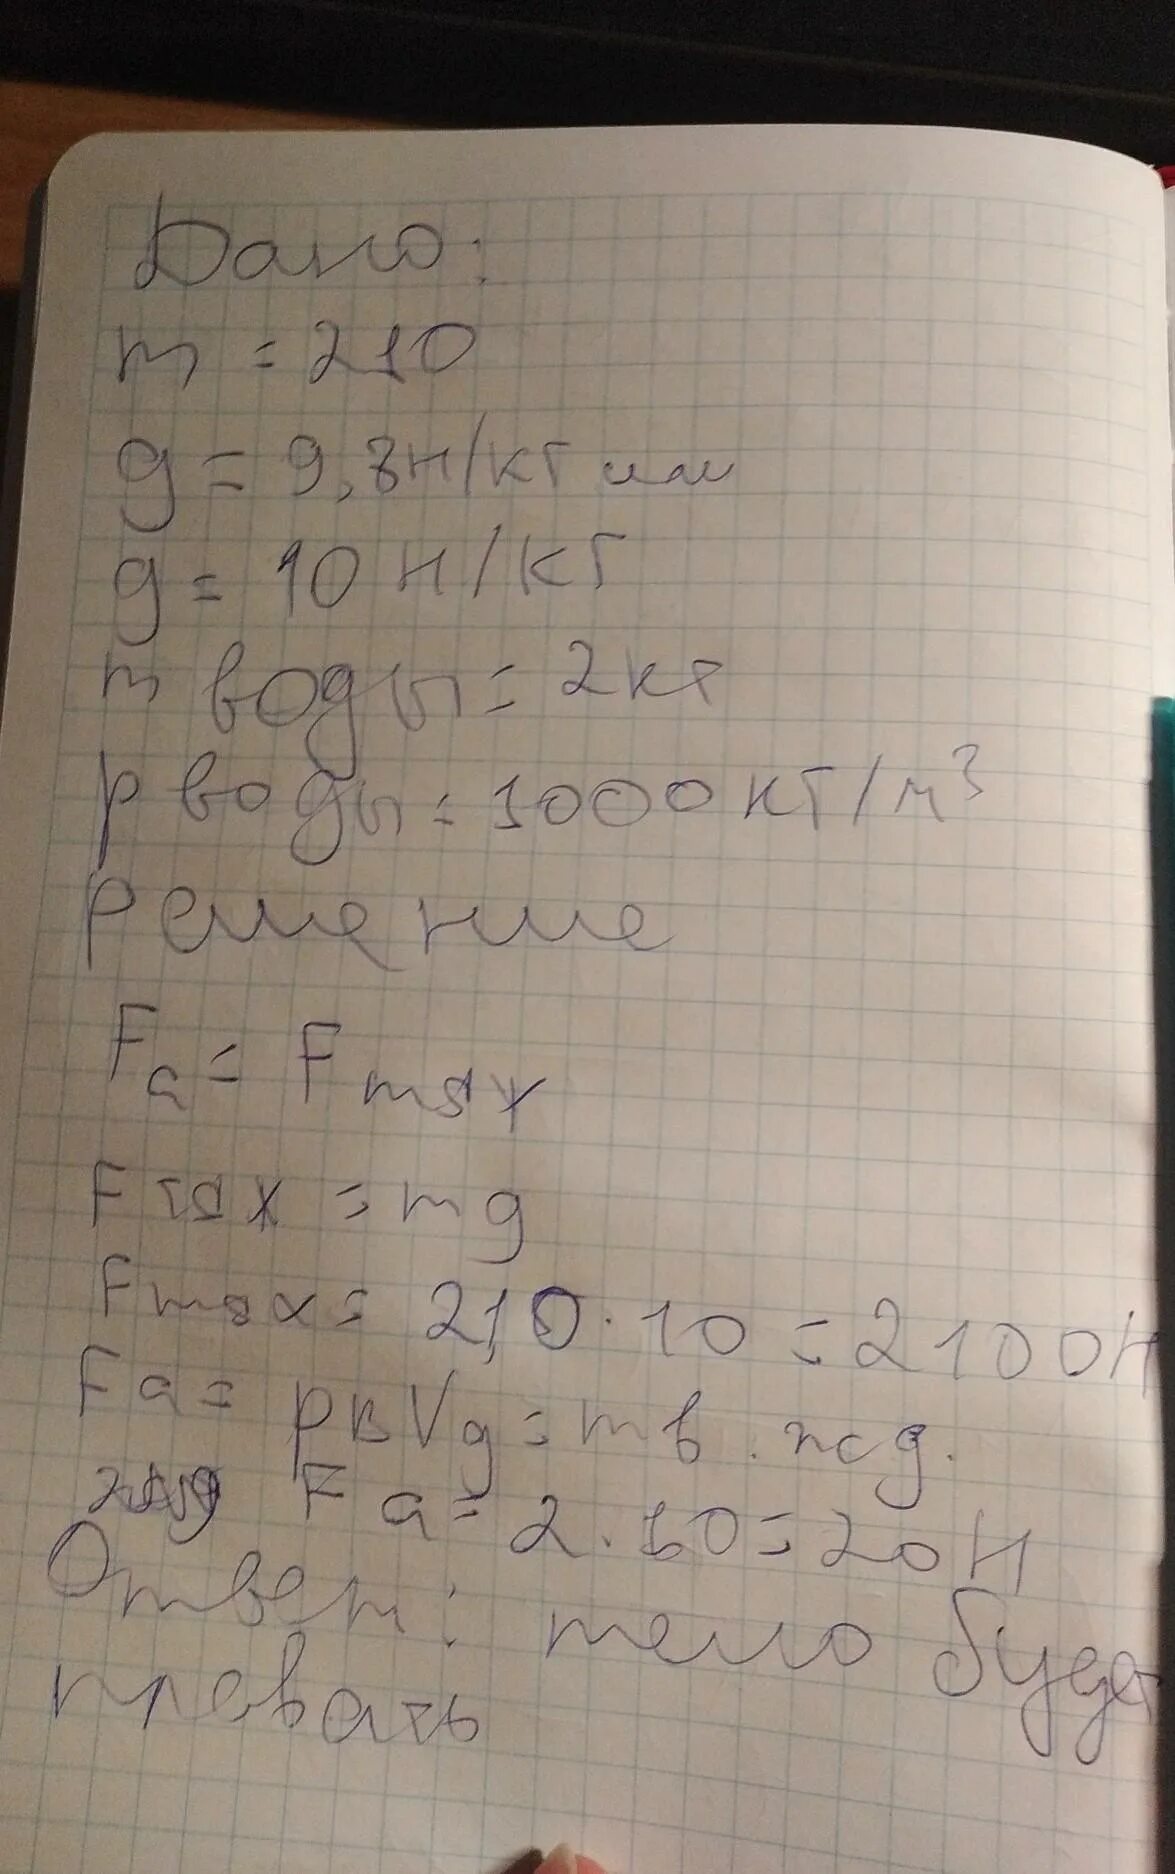 Дано:
m = 210
g = 9,8н/кг или
g = 10 н/кг
m воды = 2кг
p воды = 1000кг/м³
Решение
Fа = Fтяж
Fтяж = mg
Fтяж = 210 · 10 = 2100Н
Fа = pвVg = mв.
Fа = 2 · 10 = 20Н
Ответ: тело будет
плавать